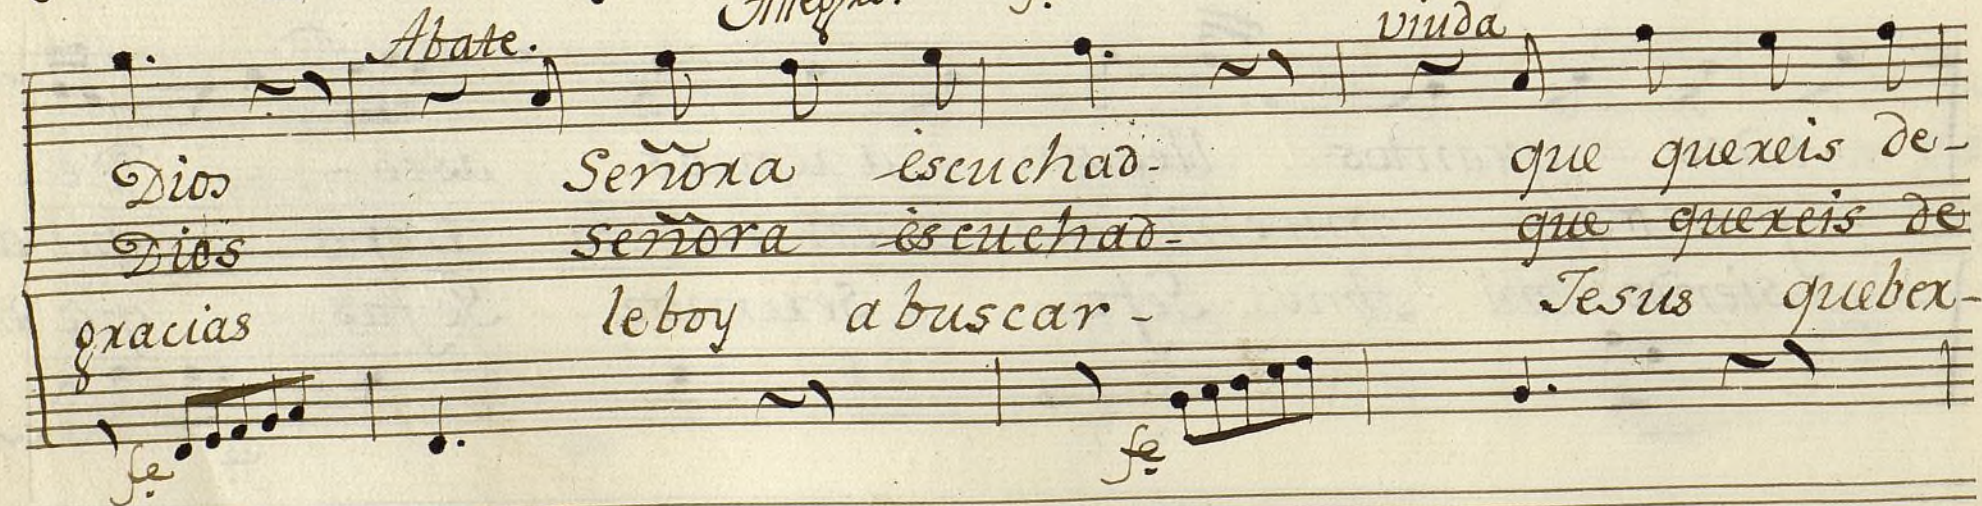 Abate. Allegro. viuda
Dios Señora escuchad- que quereis de-
Dios señora escuchad- que quereis de
gracias le boy a buscar- Jesus que ber-
fe fe